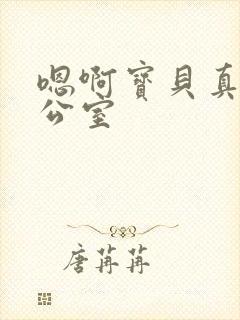 嗯啊寳貝真
公室
唐苒苒